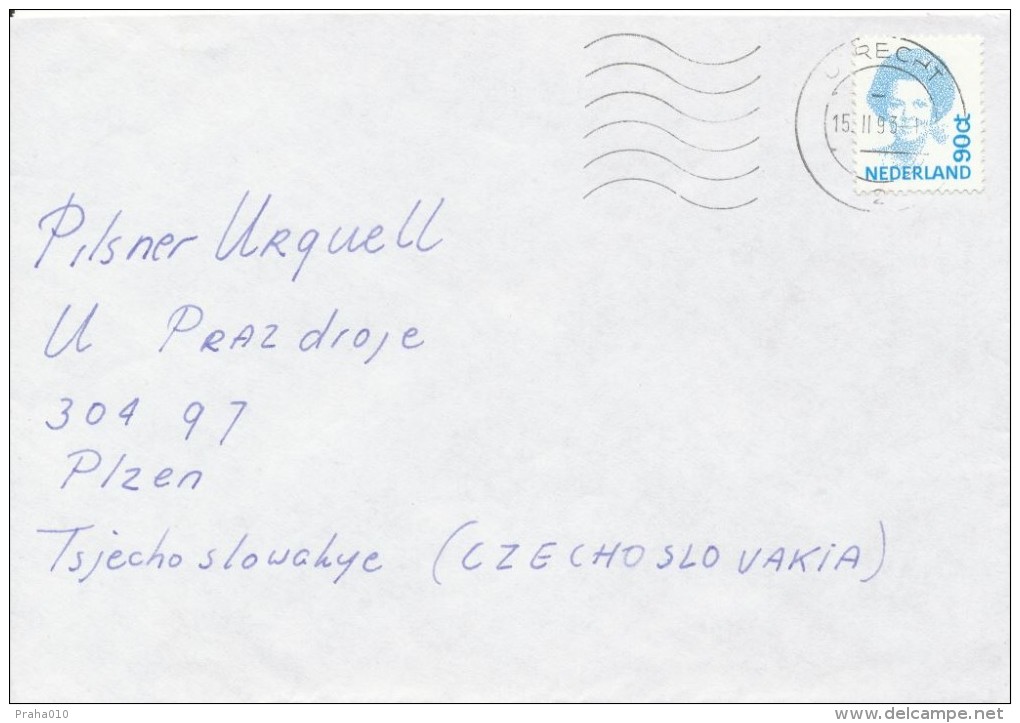 UTRECHT
15. II 93
2
NEDERLAND
90ct
Pilsner Urquell
U PRAZdroje
304 97
Plzen
Tsjechoslowakye (CZECHOSLOVAKiA)
Praha010
www.delcampe.net